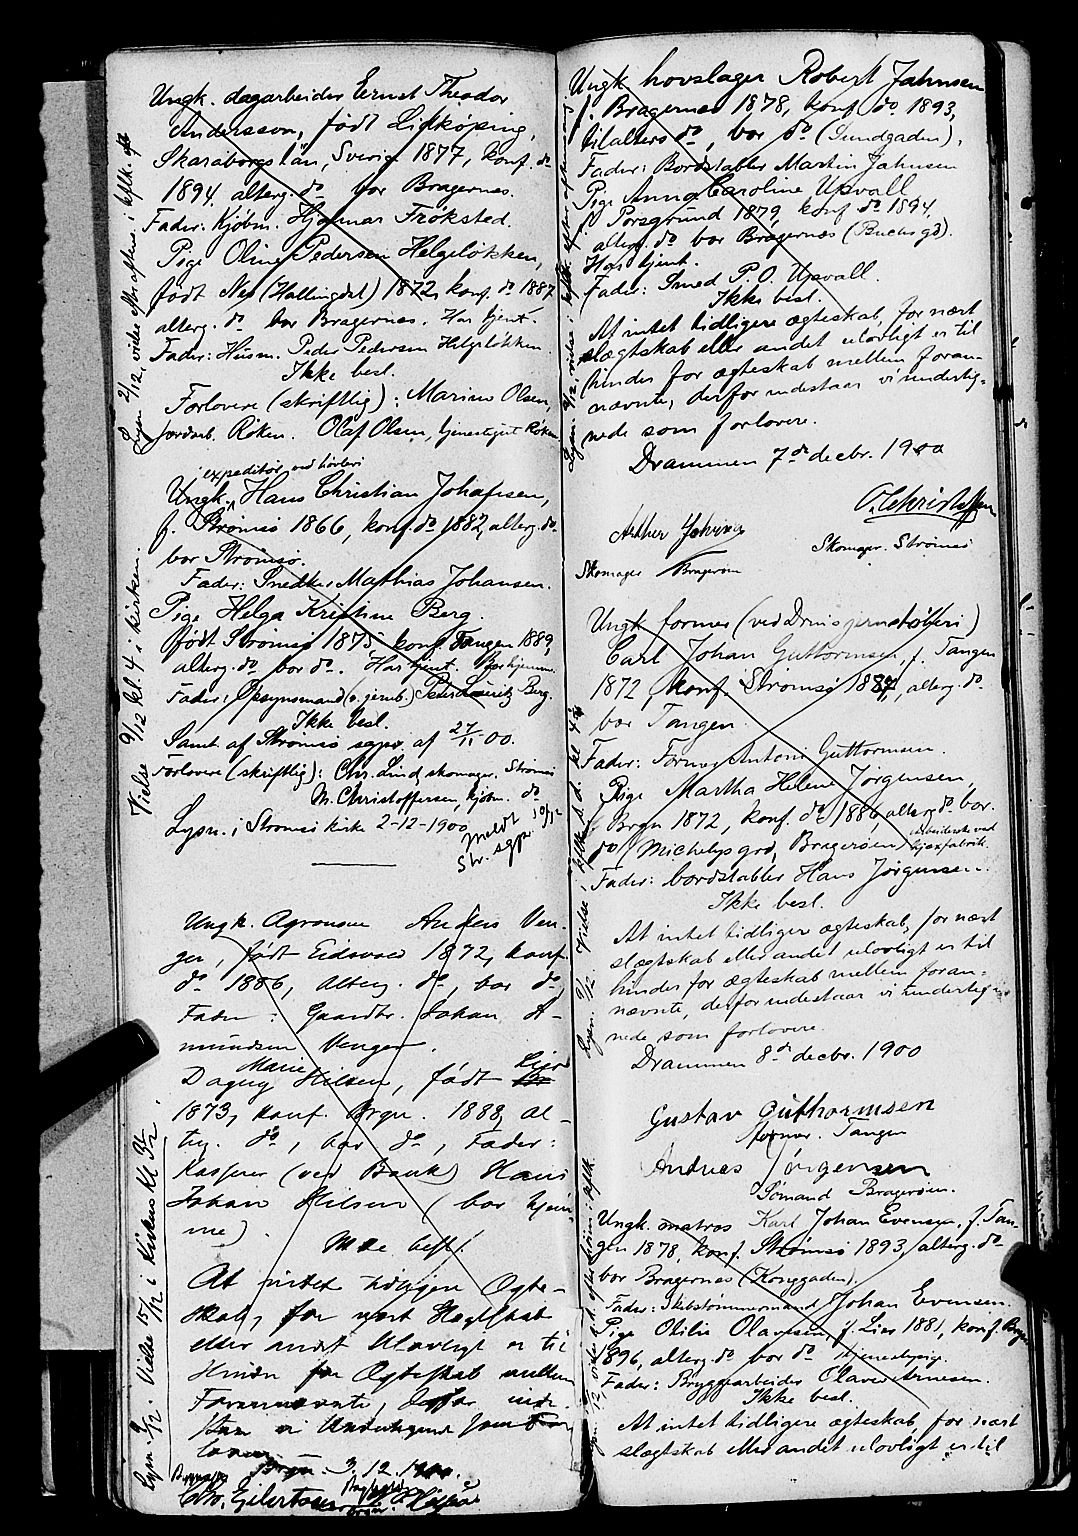 Ungk. dagarbeider Ernst Theodor
Andersson, født Lidköping,
Skaraborgs län, Sverige 1877, konf. do
1894, alterg. do bor Bragernes.
Fader: Kjøbm. Hjalmar Fröksted.
Pige Oline Pedersen Helgeløkken,
født Nes (Hallingdal) 1872, konf. do 1887
alterg. do bor Bragernes. Har tjent.
Fader: Husm. Peder Pedersen Helgeløkken.
Ikke besl.
Forlovere (skriftlig): Marius Olsen,
jordarb. Røken. Olaf Olsen, tjenestegut Røken
Ungk. expeditør ved
Hans Christian Johansen,
f. Strømsø 1866, konf. do 1882, alterg. do
bor Strømsø.
Fader: Snedker Mathias Johansen.
Pige Helga Kristine Berg.
født Strømsø 1875 konf. Tangen 1889,
alterg. do bor do. Har tjent.
Fader: Opsynsmand (v. jernb.) Peder Lauritz Berg.
Ikke besl.
Samt. af Strømsø sgpr. af 27/11 00.
Forlovere (skriftlig): Chr. Lind skomager. Strømsø
M. Christoffersen, kjøbm. do
Lysn. i Strømsø kirke 2-12-1900
Meldt
Str. sgpr. 10/12
Vielse 9/12 kl. 4 i kirken.
Ungk. Agronom Anders Ven-
ger, født Eidsvold 1872, konf.
do 1886, alterg. do, bor do
Fader: Gaardbr. Johan A-
mundsen Venger.
Dagny Marie Hilsen, født Lier
1873, konf. Brgn. 1888, al-
terg. do, bor do, Fader:
Kasserer (ved Bank) Hans
Johan Hilsen (bor hjem-
me).
Ikke besl.
At intet tidligere Ægte-
skab, for nært Slægtskab
eller andet Ulovligt er til
Hinder for Ægteskab mellem
Forannævnte, derfor inde-
staa vi Undertegnede som For-
lovere.
Brgn. 3.12.1900.
Chr. Eilertsen
Ungk hovslager Robert Jahnsen
f. Bragernes 1878, konf do 1893,
til alters do, bor do (Sundgaden).
Fader: Bordstabler Martin Jahnsen
Pige Anna Caroline Upvall
f. Porsgrund 1879, konf do 1894,
alterg. do bor Bragernes
Har tjent.
Fader: Smed P. O. Upvall.
Ikke besl.
At intet tidligere ægteskab, for nært
slægtskab eller andet ulovligt er til
hinder for ægteskab mellem foran-
nævnte, derfor indestaar vi underteg-
nede som forlovere.
Drammen 7de decbr. 1900
O. Christoffersen
Skomager. Strømsø
Arthur Jahnsen
Skomager Bragernes
Ungk former (ved Drms jernstøberi)
Carl Johan Guttormsen, f. Tangen
1872, konf. Strømsø 1887, alterg. do
bor Tangen.
Fader: Former Antoni Guttormsen.
Pige Martha Helene Jørgensen,
f. Brgn 1872, konf. do 1886, alterg. do bor
do (Michelsgrd, Bragerøen)
Fader: bordstabler Hans Jørgensen.
Ikke besl.
At intet tidligere ægteskab, for nært
slægtskab eller andet ulovligt er til
hinder for ægteskab mellem foran-
nævnte, derfor indestaar vi underteg-
nede som forlovere.
Drammen 8de decbr. 1900
Gustav Guthormsen
former. Tangen
Andreas Jørgensen
Sømand Bragerøen.
Ungk. matros Karl Johan Evensen, f. Tan-
gen 1878, konf. Strømsø 1893, alterg. do
bor Bragernes (Konggaden).
Fader: Skibstømmermand Johan Evensen.
Pige Otilie Olavsen, f. Lier 1881, konf. Brgn
1896, alterg. do bor do tjenestepige.
Fader: Bryggearbeider Olaves Arnesen.
Ikke besl.
At intet tidligere ægteskab, for nært
slægtskab eller andet ulovligt er til